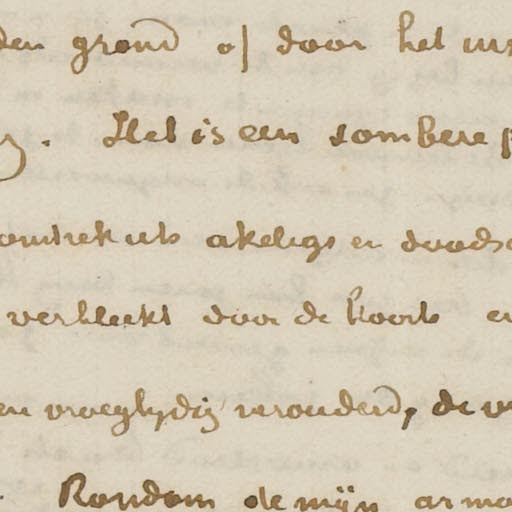 den grond of door het
. Het is een sombere
omtrek iets akeligs en doods
verbleekt door de koorts en
en vroegtydig verouderd, de
. Rondom de mijn